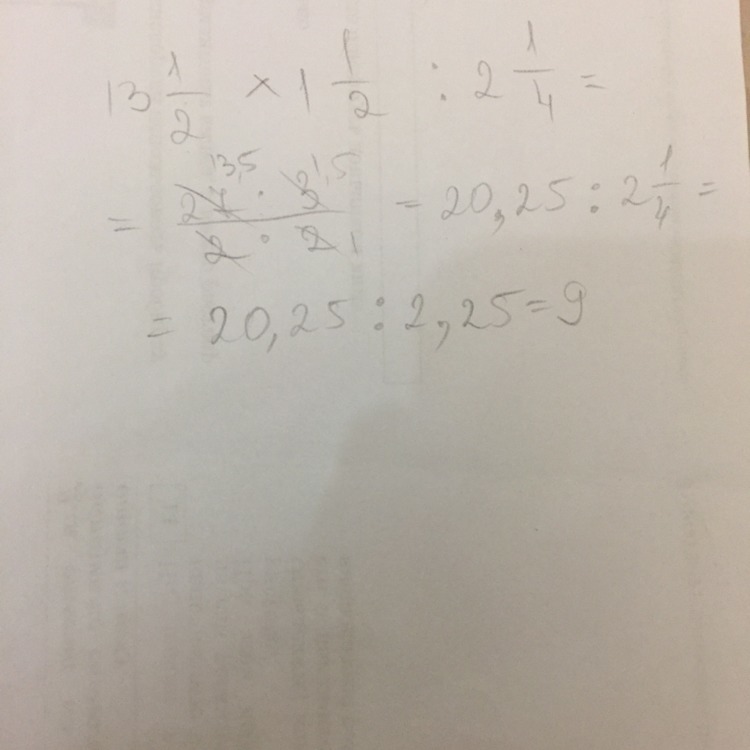 13 1/2 × 1 1/2 : 2 1/4 =
= 27 13,5 · 3 1,5 / 2 · 2 1 = 20,25 : 2 1/4 =
= 20,25 : 2,25 = 9